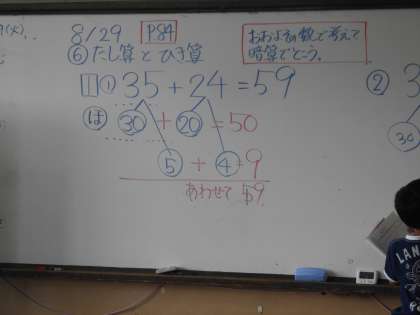 8/29 P84
⑥たし算とひき算
おおよその数で考えて
暗算でとこう。
1 ① 35+24=59
は 30+20=50
5+4=9
あわせて 59
②
3
30
LAN